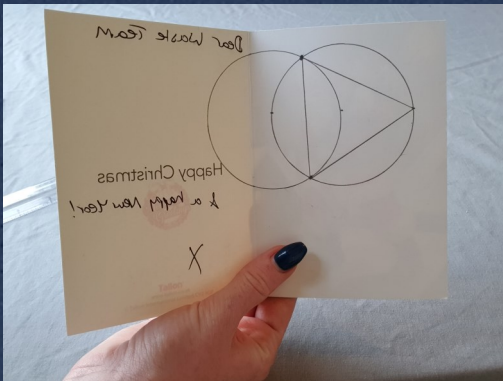 Dear Waste Team
Happy Christmas
& a happy New Year!
X